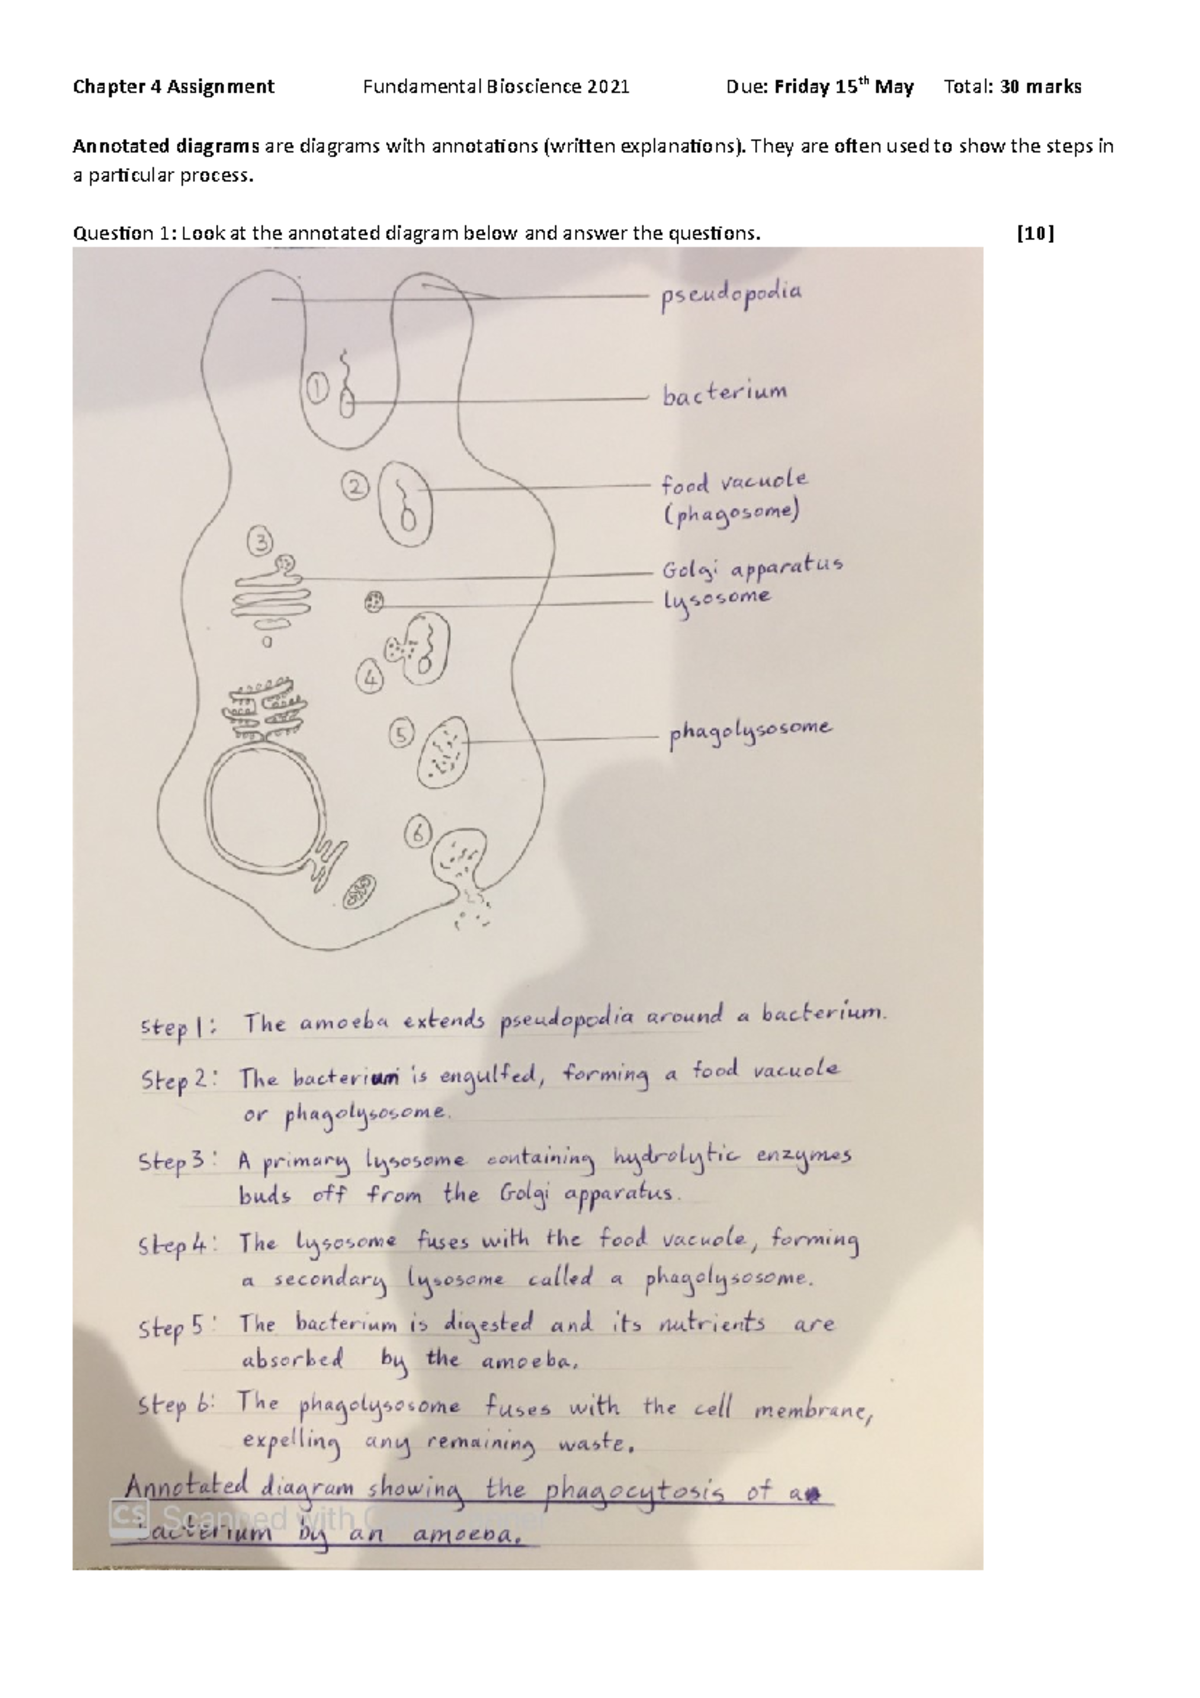 Chapter 4 Assignment Fundamental Bioscience 2021 Due: Friday 15th May Total: 30 marks
Annotated diagrams are diagrams with annotations (written explanations). They are often used to show the steps in
a particular process.
Question 1: Look at the annotated diagram below and answer the questions. [10]
pseudopodia
1
bacterium
2
food vacuole
(phagosome)
3
Golgi apparatus
lysosome
4
5
phagolysosome
6
Step 1: The amoeba extends pseudopodia around a bacterium.
Step 2: The bacterium is engulfed, forming a food vacuole
or phagolysosome.
Step 3: A primary lysosome containing hydrolytic enzymes
buds off from the Golgi apparatus.
Step 4: The lysosome fuses with the food vacuole, forming
a secondary lysosome called a phagolysosome.
Step 5: The bacterium is digested and its nutrients are
absorbed by the amoeba.
Step 6: The phagolysosome fuses with the cell membrane,
expelling any remaining waste.
Annotated diagram showing the phagocytosis of a
bacterium by an amoeba.
CS Scanned with